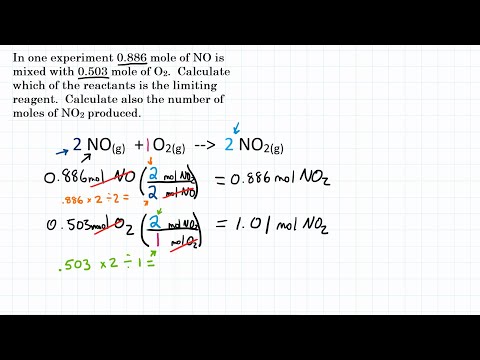 In one experiment 0.886 mole of NO is
mixed with 0.503 mole of O₂. Calculate
which of the reactants is the limiting
reagent. Calculate also the number of
moles of NO₂ produced.
2 NO(g) + 1 O₂(g) --> 2 NO₂(g)
0.886 mol NO (2 mol NO₂ / 2 mol NO) = 0.886 mol NO₂
.886 × 2 ÷ 2 =
0.503 mol O₂ (2 mol NO₂ / 1 mol O₂) = 1.01 mol NO₂
.503 × 2 ÷ 1 =